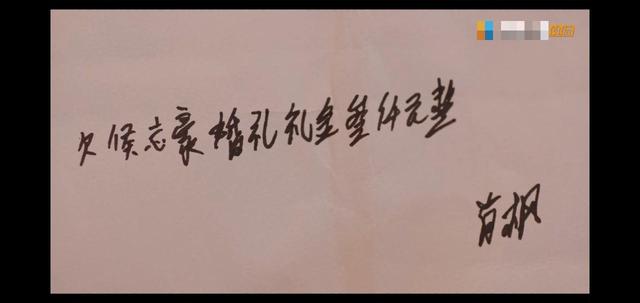 欠侯志豪婚礼礼金叁仟元整
肖枫